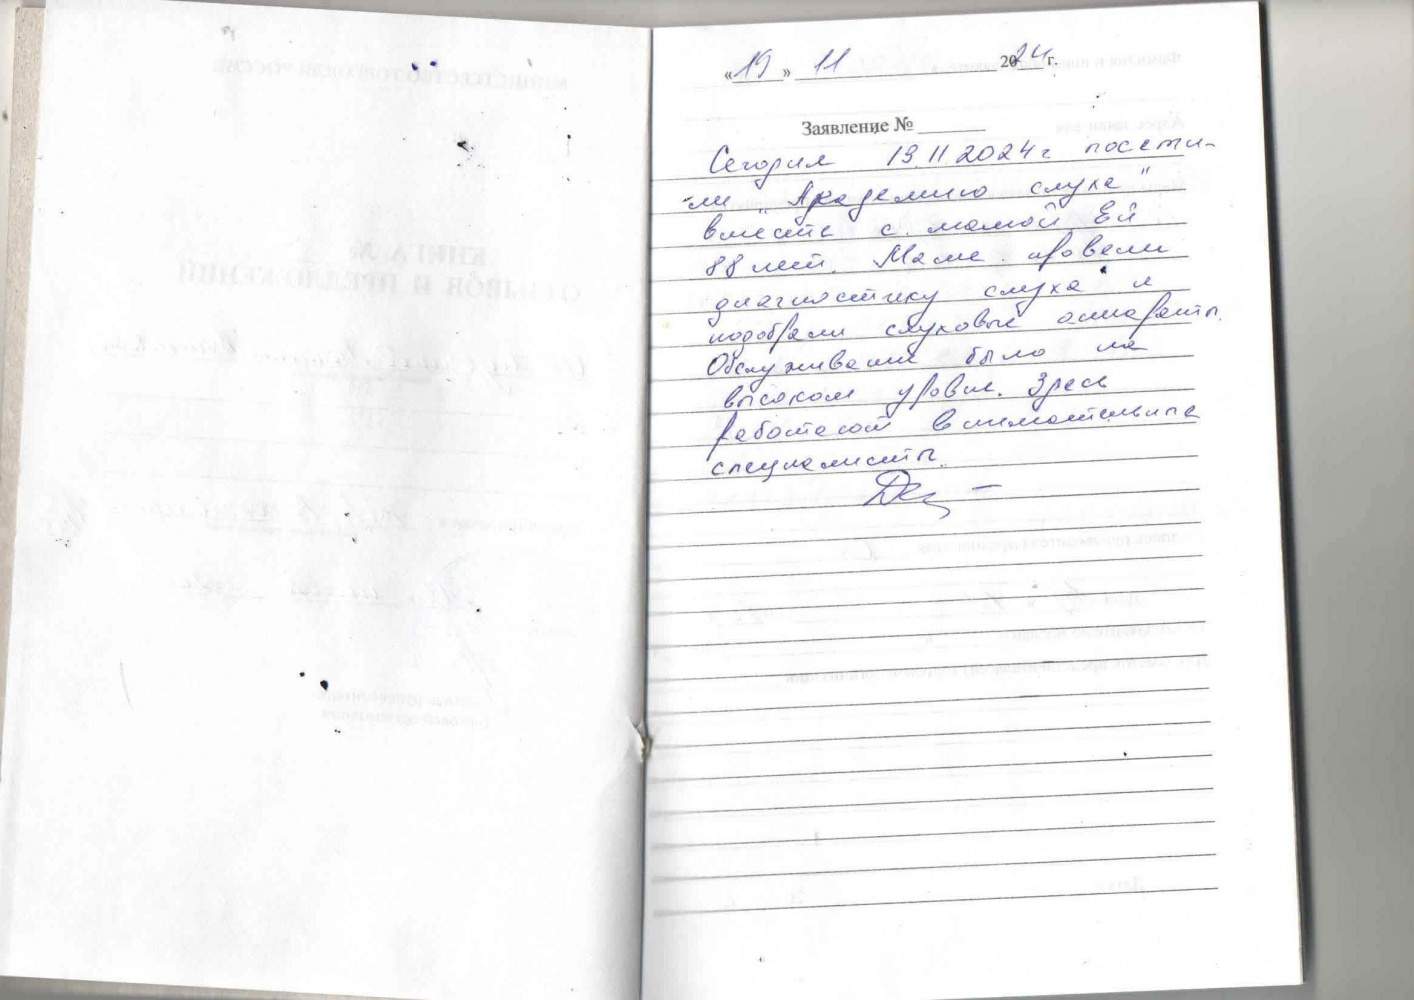 «19» 11 2024г.
Заявление №
Сегодня 19.11 2024г посети-
-ли "Академию слуха"
вместе с мамой. Ей
88 лет. Маме провели
диагностику слуха и
подобрали слуховые аппараты.
Обслуживание было на
высоком уровне. Здесь
работают внимательные
специалисты.